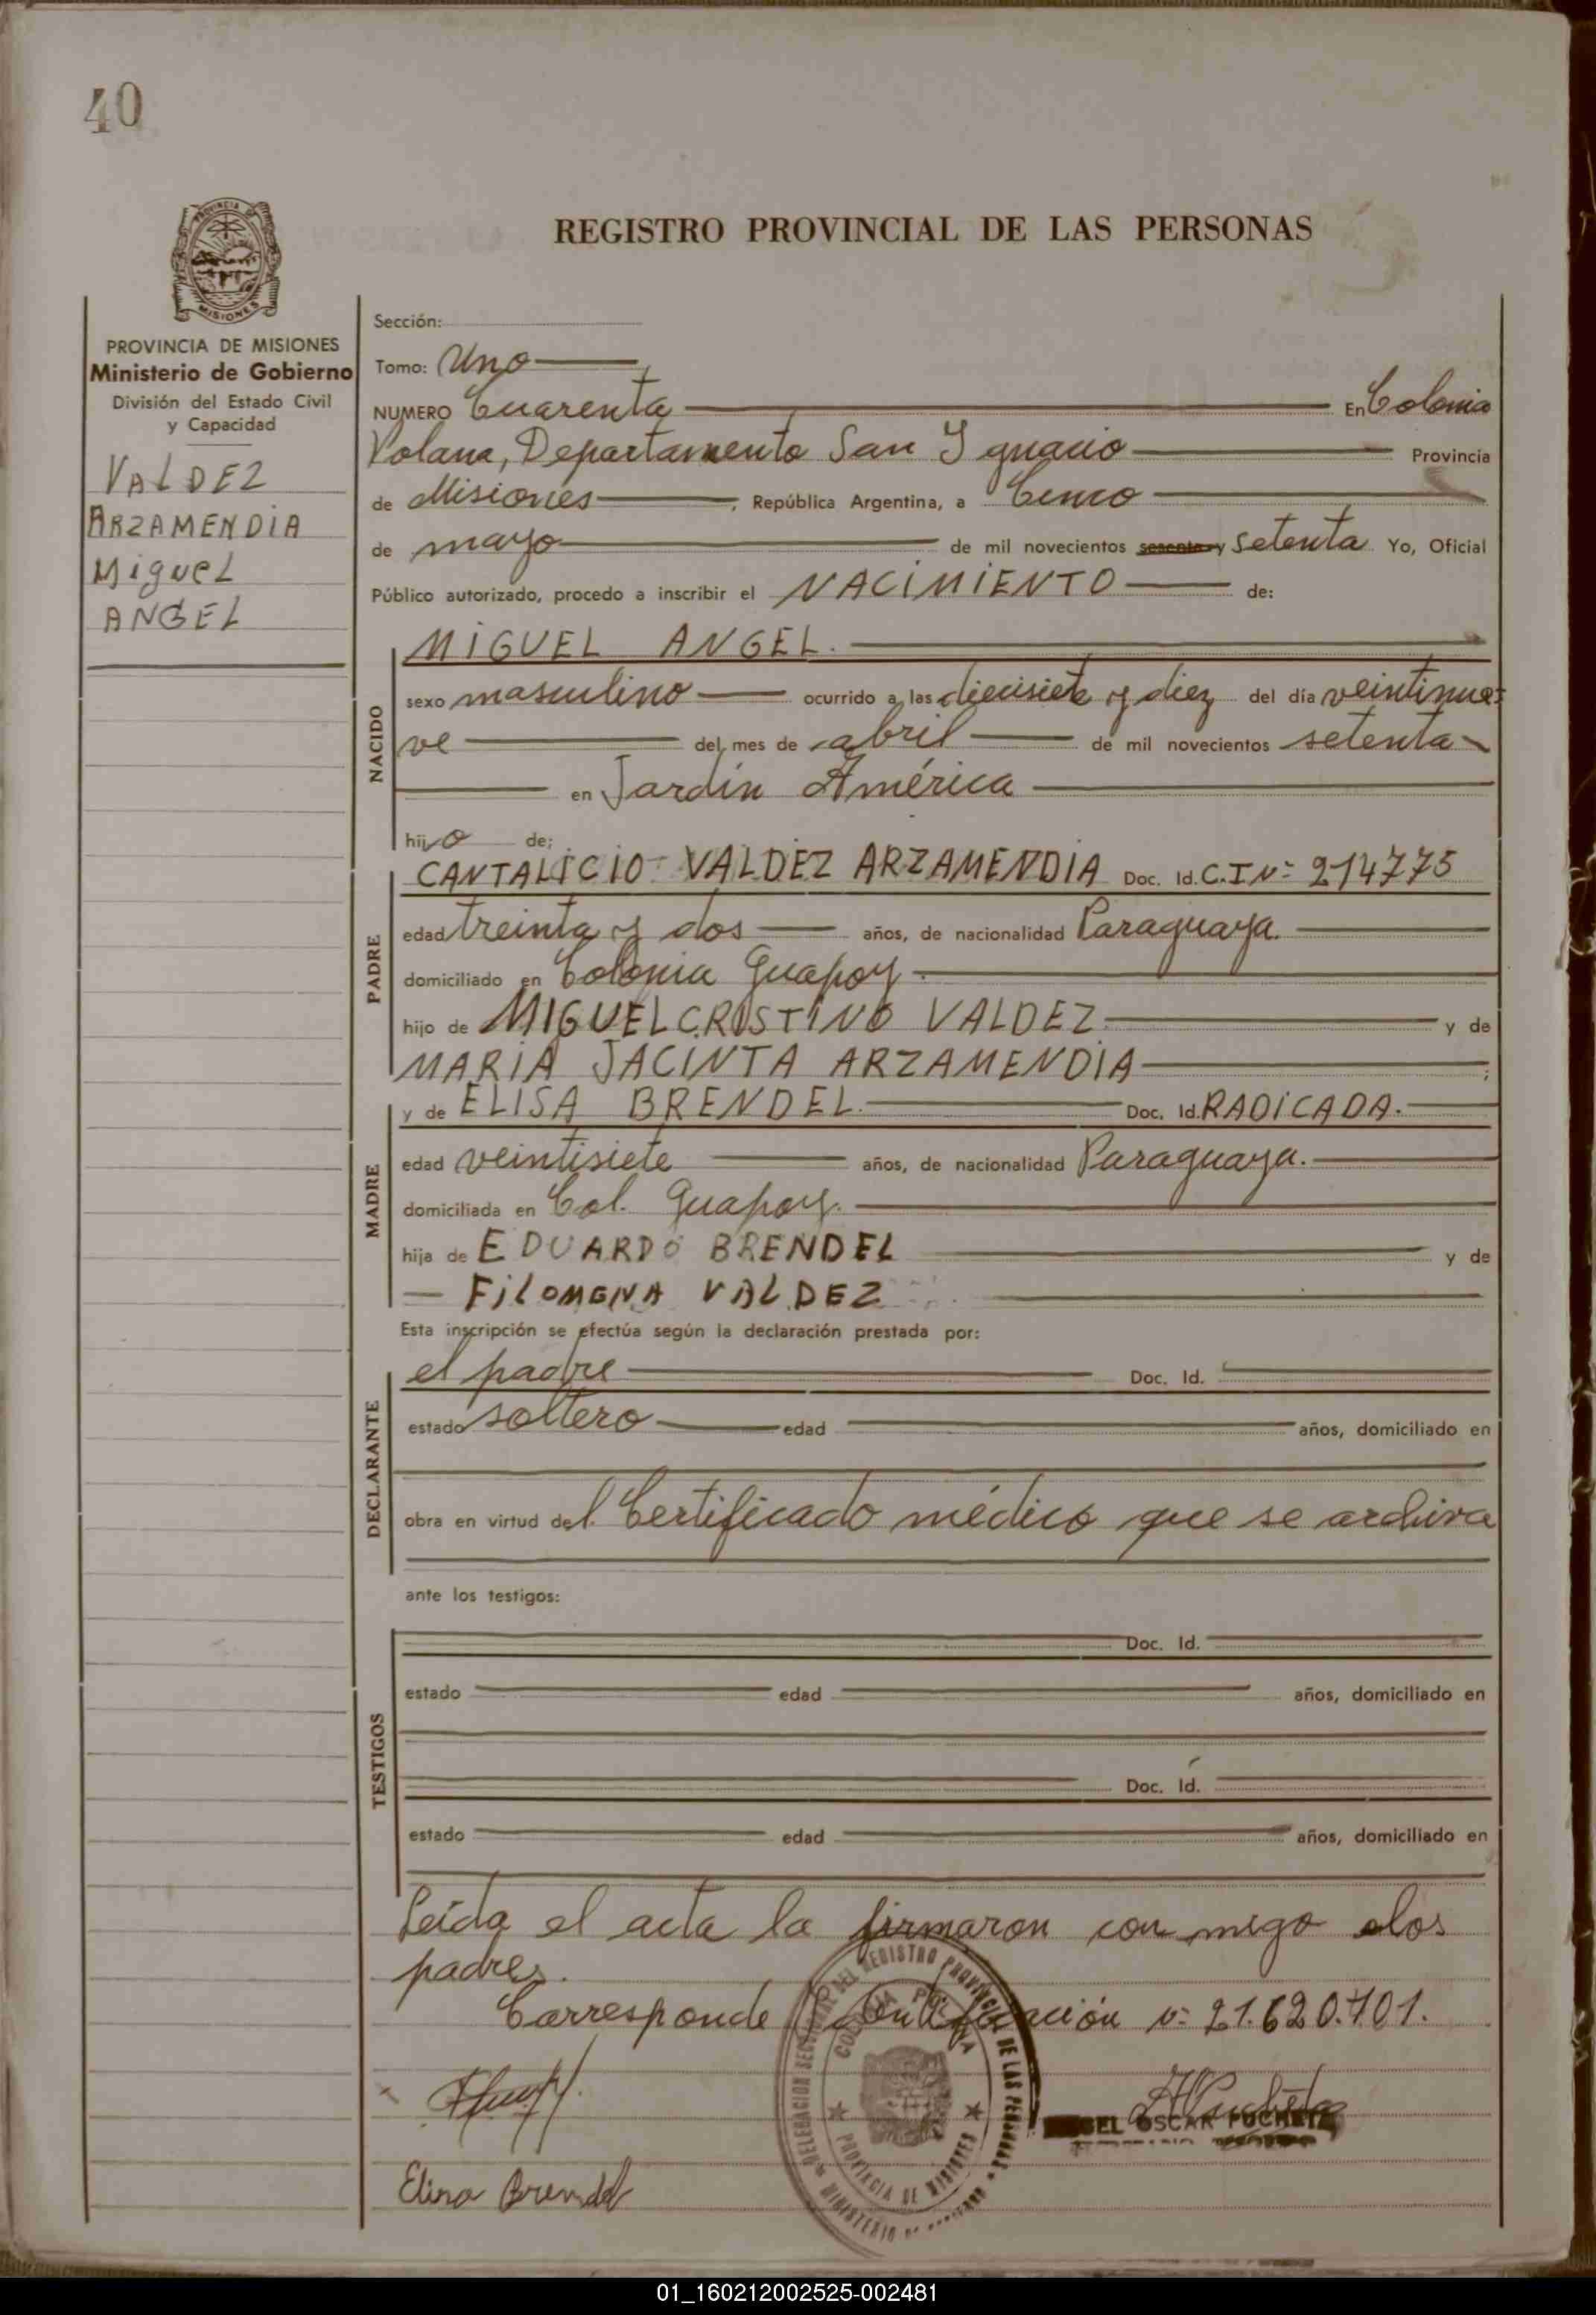 40
REGISTRO PROVINCIAL DE LAS PERSONAS
PROVINCIA DE MISIONES
Ministerio de Gobierno
División del Estado Civil
y Capacidad
VALDEZ
ARZAMENDIA
MIGUEL
ANGEL
Sección:
Tomo: Uno
NUMERO Cuarenta En Colonia
Polana, Departamento San Ignacio Provincia
de Misiones, República Argentina, a Cinco
de mayo de mil novecientos sesenta y setenta Yo, Oficial
Público autorizado, procedo a inscribir el NACIMIENTO de:
NACIDO
MIGUEL ANGEL.
sexo masculino ocurrido a las diecisiete y diez del día veintinue=
ve del mes de abril de mil novecientos setenta
en Jardín América
hijo de;
PADRE
CANTALICIO VALDEZ ARZAMENDIA Doc. Id. C.I Nº 214775
edad treinta y dos años, de nacionalidad Paraguaya.
domiciliado en Colonia Guapoy.
hijo de MIGUEL CRISTINO VALDEZ. y de
MARIA JACINTA ARZAMENDIA;
MADRE
y de ELISA BRENDEL. Doc. Id. RADICADA.
edad veintisiete años, de nacionalidad Paraguaya.
domiciliada en Col. Guapoy.
hija de EDUARDO BRENDEL y de
FILOMENA VALDEZ
Esta inscripción se efectúa según la declaración prestada por:
DECLARANTE
el padre Doc. Id.
estado soltero edad años, domiciliado en
obra en virtud del Certificado médico que se archiva
ante los testigos:
TESTIGOS
Doc. Id.
estado edad años, domiciliado en
Doc. Id.
estado edad años, domiciliado en
Leída el acta la firmaron con migo los
padres.
Corresponde Identificación nº 21.620.701.
DELEGACION DEL REGISTRO PROVINCIAL DE LAS PERSONAS
COLONIA POLANA
PROVINCIA DE MISIONES
MINISTERIO DE
OSCAR PUCHETA
Elisa Brendel
01_160212002525-002481